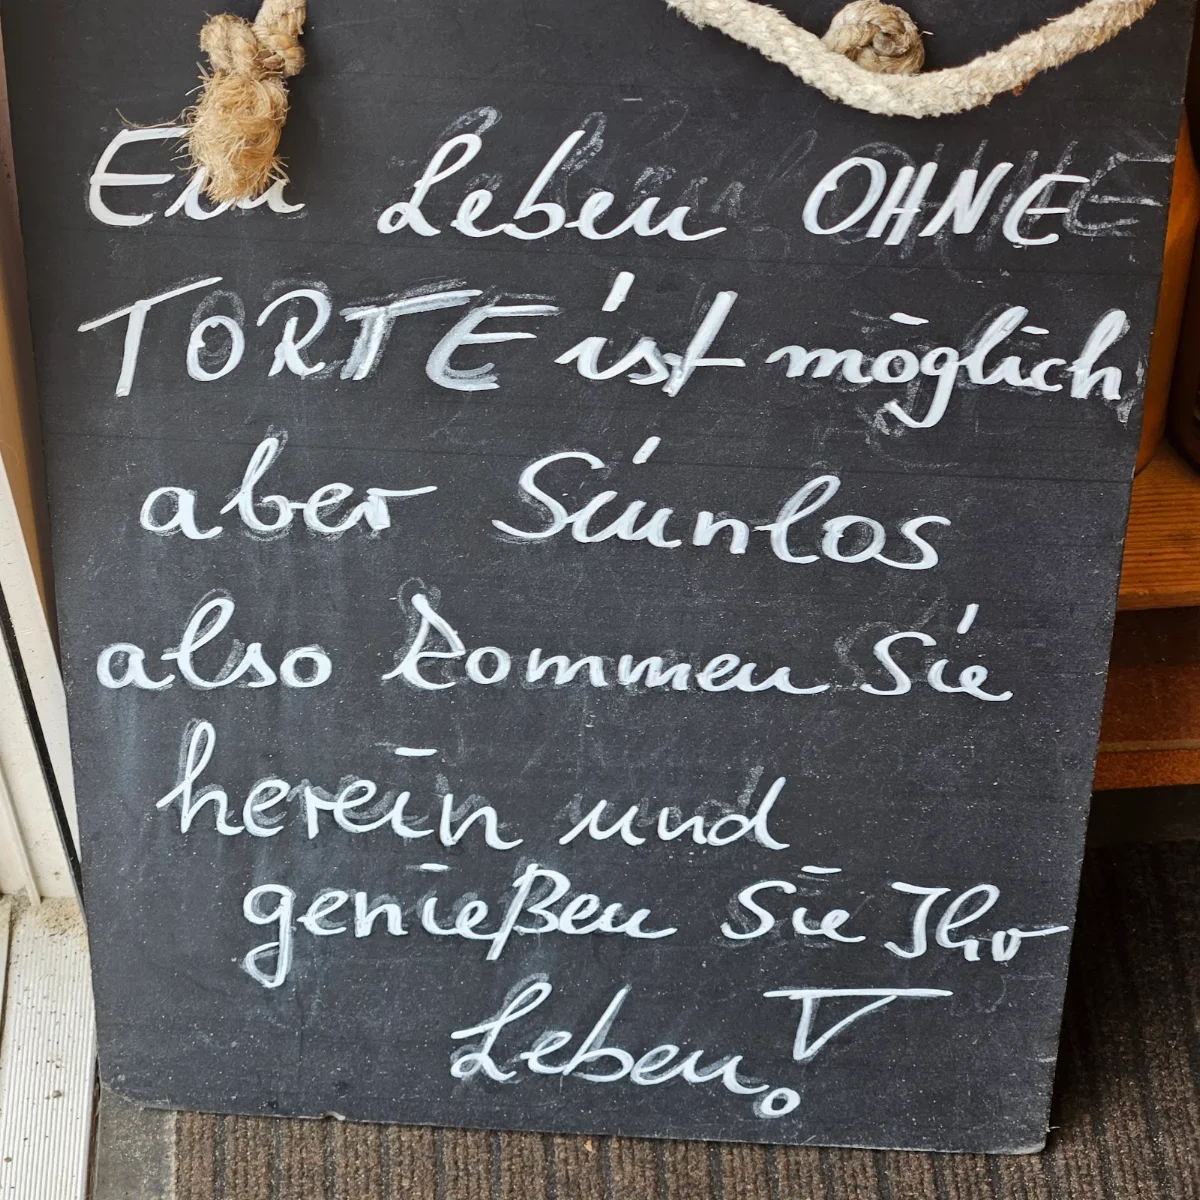 Ein Leben OHNE
TORTE ist möglich
aber Sinnlos
also kommen Sie
herein und
genießen Sie Ihr
Leben!